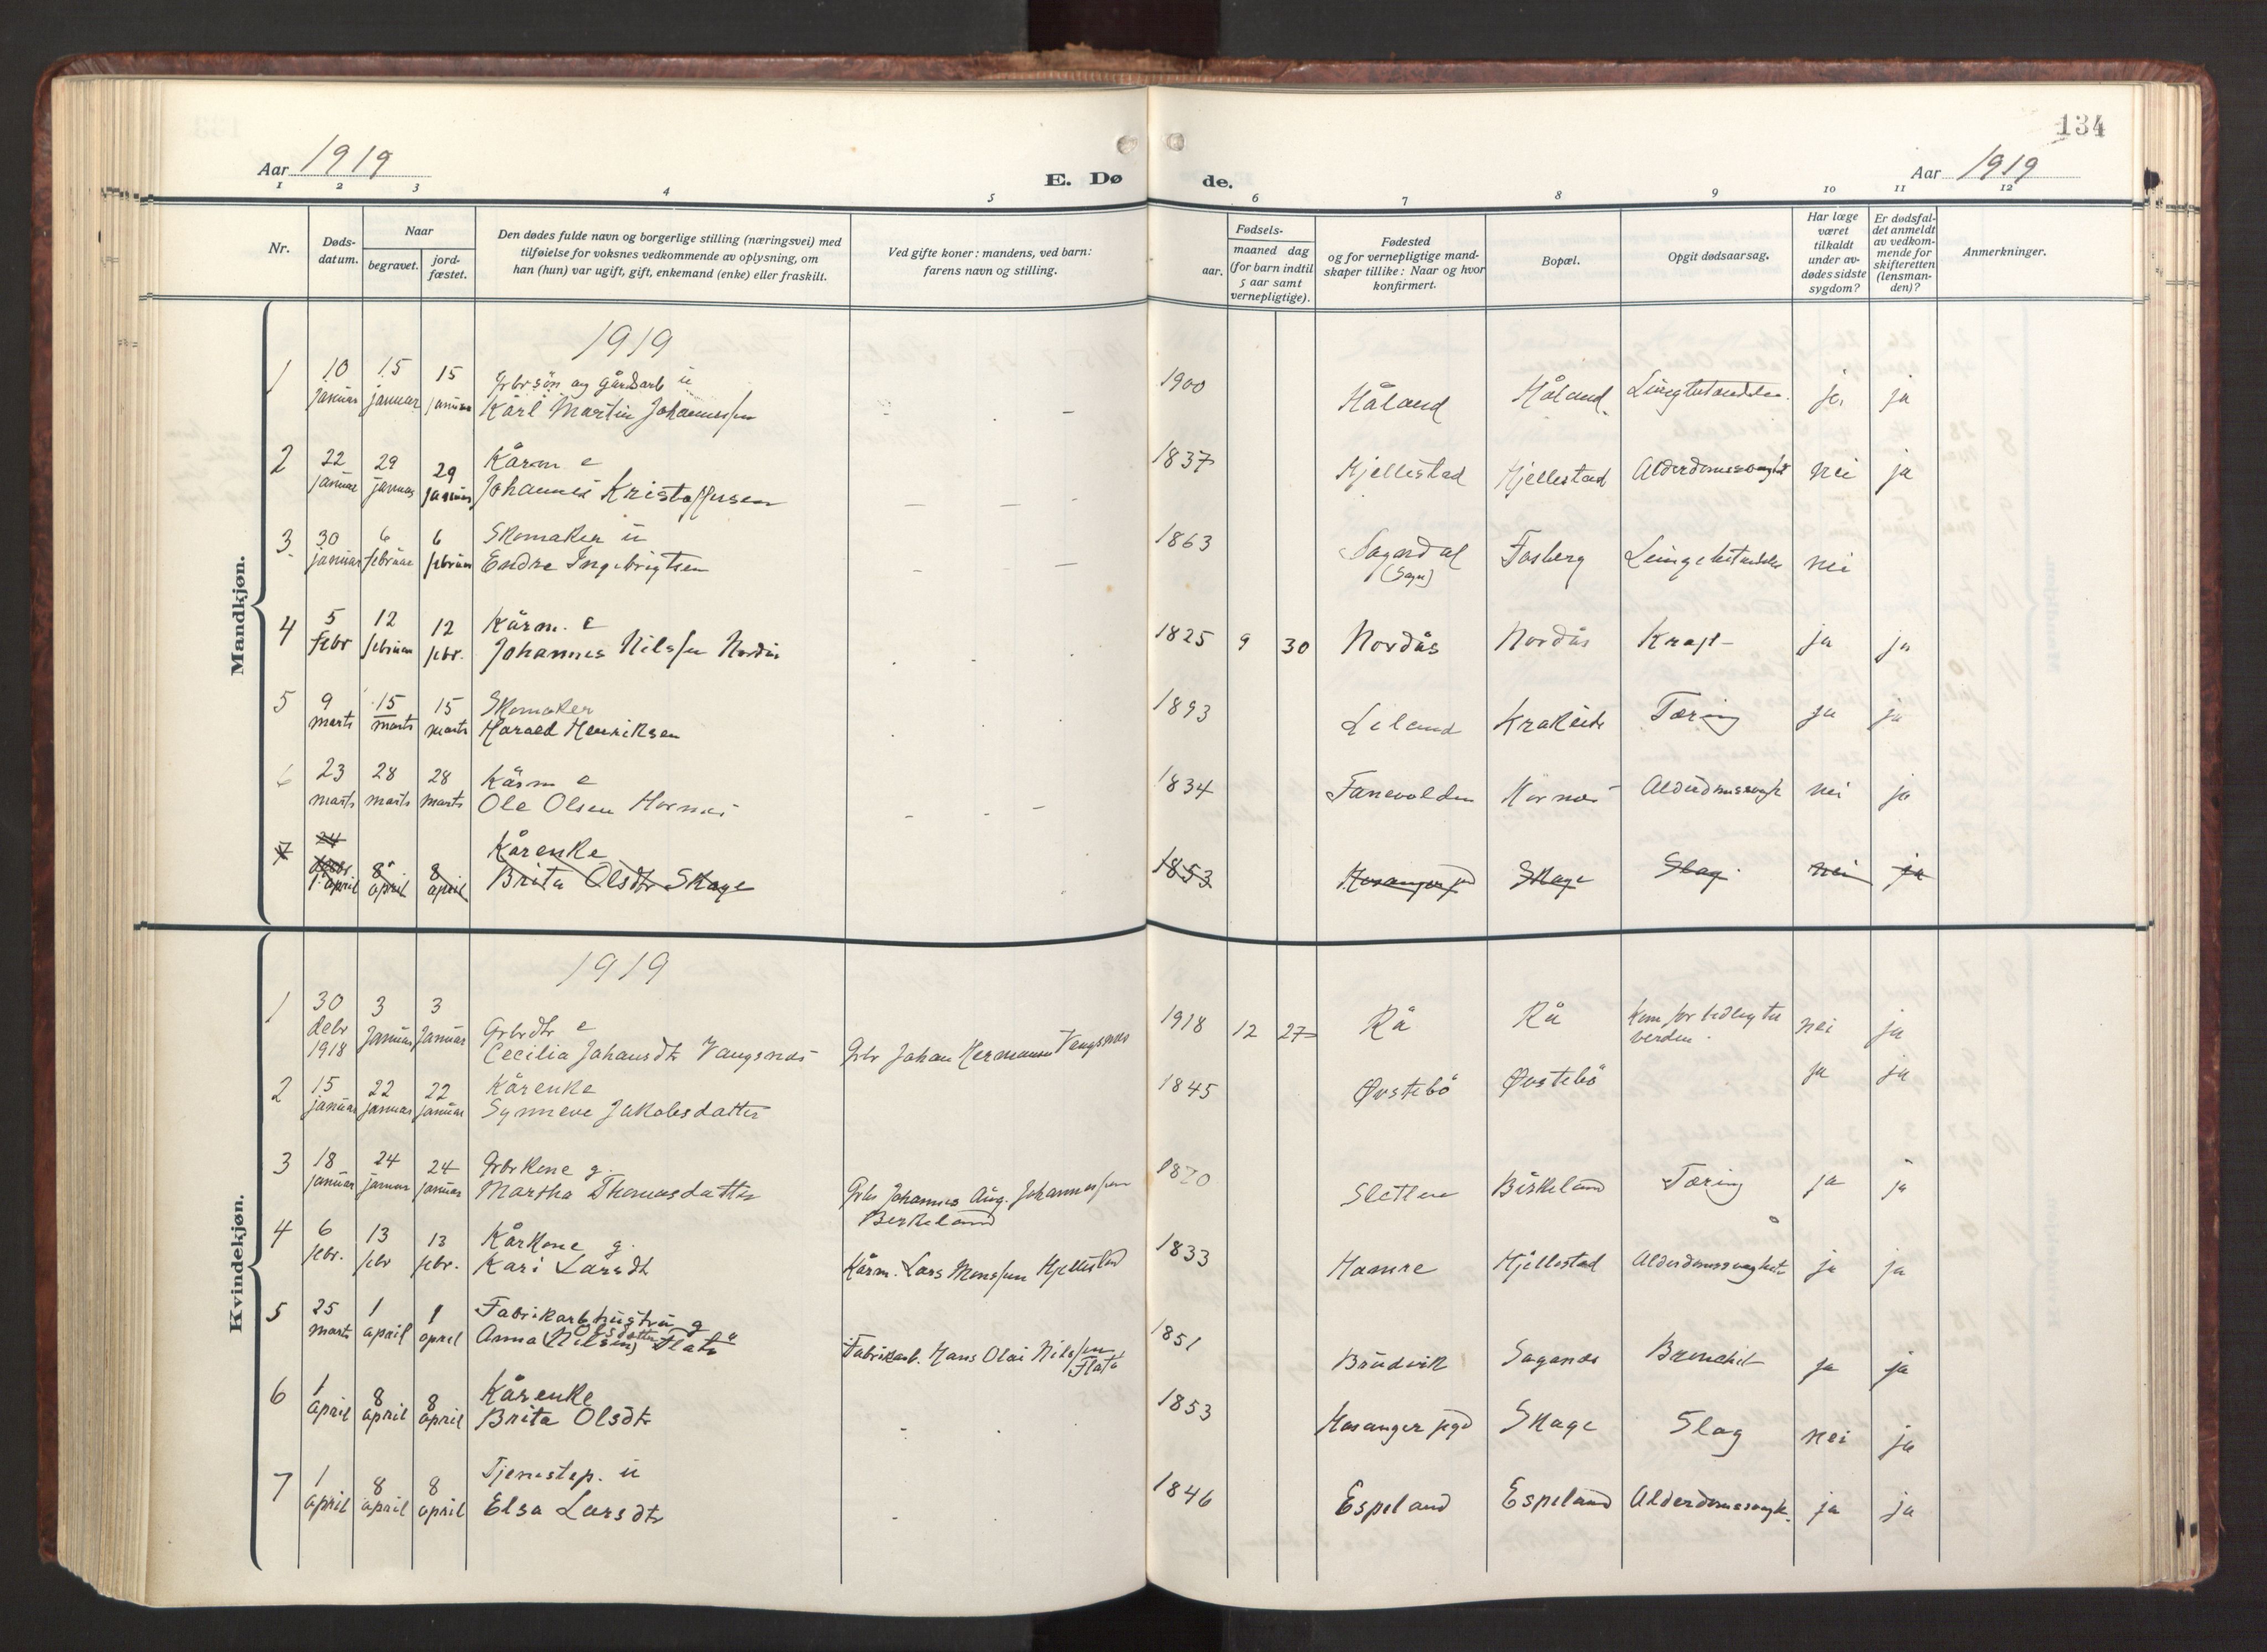 134
Aar 1919
E. Dø
de.
Aar 1919
1 2 3 4 5 6 7 8 9 10 11 12
Nr.
Døds-
datum.
Naar
begravet.
jord-
fæstet.
Den dødes fulde navn og borgerlige stilling (næringsvei) med
tilføielse for voksnes vedkommende av oplysning, om
han (hun) var ugift, gift, enkemand (enke) eller fraskilt.
Ved gifte koner: mandens, ved barn:
farens navn og stilling.
Fødsels-
aar.
maaned dag
(for barn indtil
5 aar samt
vernepligtige).
Fødested
og for vernepligtige mand-
skaper tillike: Naar og hvor
konfirmert.
Bopæl.
Opgit dødsaarsag.
Har læge
været
tilkaldt
under av-
dødes sidste
sygdom?
Er dødsfal-
det anmeldt
av vedkom-
mende for
skifteretten
(lensman-
den)?
Anmerkninger.
Mandkjøn.
1919
1 10 15 15 Grbrsøn og gårdsarb ü 1900
januar januar januar Karl Martin Johannessen Håland Håland ja ja
2 22 29 29 Kårm e 1837
januar januar januar Johannes Kristoffersen Hjellestad Hjellestad Alderdomssvaghet nei ja
3 30 6 6 Skomaker ü 1863
januar februar februar Endre Ingebrigtsen Sogndal Fosberg nei
(Sogn)
4 5 12 12 Kårm. e 1825 9 30
febr februar febr. Johannes Nilssen Nordås Nordås Nordås Kræft ja ja
5 9 15 15 Skomaker 1893
marts marts marts Harald Henriksen Liland Krakeide Tæring ja ja
6 23 28 28 Kårm e 1834
marts marts marts Ole Olsen Hornæs Fanevolden Hornæs Alderdomssvagh nei ja
7 24 Kårenke 1853
1. april 8 april 8 april Brita Olsdtr Skage Hosanger pgd Skage Slag. nei ja
Kvindekjøn.
1919
1 30 3 3 Grbrdtr e 1918 12 27
debr januar januar Cecilia Johansdtr Vangsnæs Grbr Johan Hermansen Vangsnæs Rå Rå Kom for tidlig til nei ja
1918 verden.
2 15 22 22 Kårenke 1845
januar januar januar Synneve Jakobsdatter Øvstebö Øvstebö ja ja
3 18 24 24 Grbrkone g.
januar januar januar Martha Thomasdatter Grbr Johannes Aug. Johannessen
Birkeland Sletten Birkeland Tæring ja ja
4 6 13 13 Kårkone g. 1833
febr. febr febr. Kari Larsdtr Kårm. Lars Monssen Hjellestad Hamre Hjellestad Alderdomssvaghet ja ja
5 25 1 1 Fabrikarbhustru g 1851
marts april april Anna (Nilsen) Olsdatter Flatö Fabrikarb. Hans Olai Nilssen
Flatö Brudvik Sagenes Bronchit ja ja
6 1 8 8 Kårenke 1853
april april april Brita Olsdtr Hosanger pgd Skage Slag nei ja
7 1 8 8 Tjenestep. ü 1846
april april april Elsa Larsdtr Espeland Espeland Alderdomssvagh. ja ja